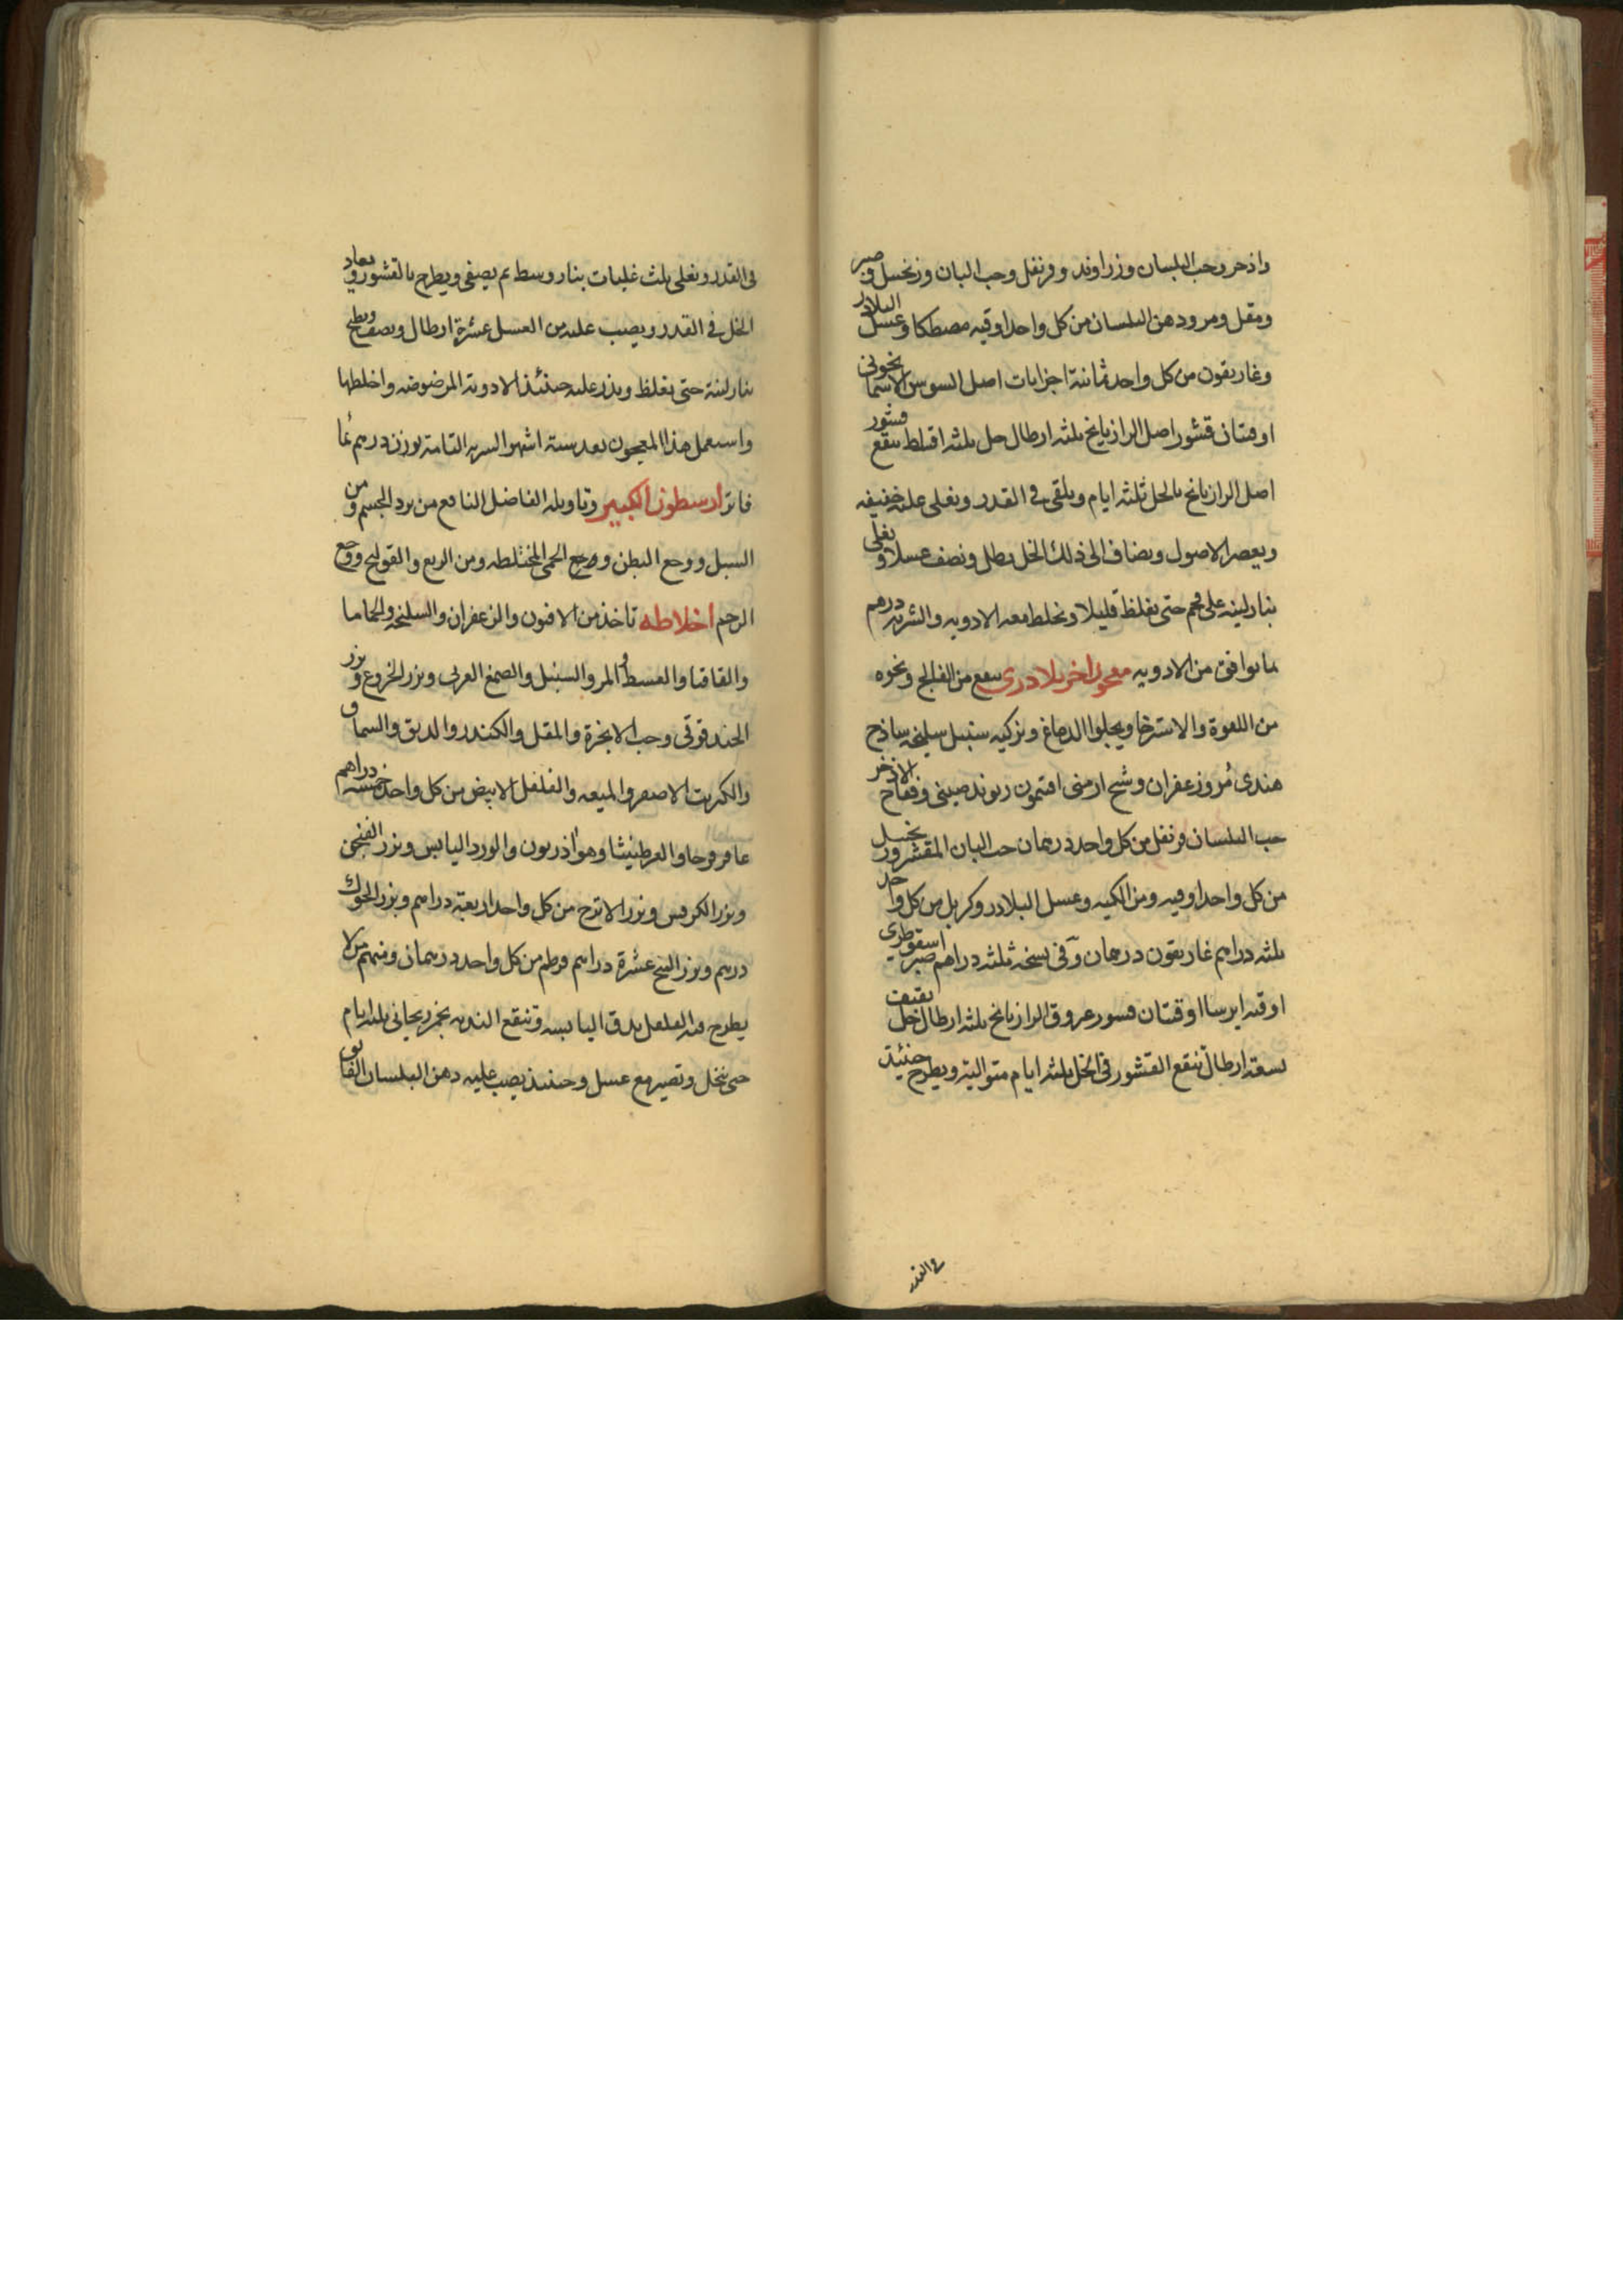 واذخر وحب البلسان وزراوند وقرنفل وحب البان وزنجبيل وصبر
ومقل ومر ودهن البلسان من كل واحد اوقيه مصطكا وعسل البلادر
وغاريقون من كل واحد ثمانية اجزايات اصل السوس الاسمانجونى
اوقيتان قشور اصل الرازيانج ثلثه ارطال خل ثلثه اقساط ينقع قشور
اصل الرازيانج بالخل ثلثه ايام ويلقى فى القدر ويغلى غليه خفيفه
ويعصر الاصول ويضاف الى ذلك الخل رطل ونصف عسلا ويغلى
بنار لينه على فحم حتى يغلظ قليلا ويخلط معه الادويه والشربه درهم
بما يوافق من الادويه معجون اخر بلادرى ينفع من الفالج ونحوه
من اللقوة والاسترخا ويجلوا الدماغ ويزكيه سنبل سليخه ساذج
هندى مُر وزعفران وشيح ارمنى افتيمون ريوند صينى وفقاح الاذخر
حب البلسان قرنفل من كل واحد درهمان حب البان المقشر وزنجبيل
من كل واحد اوقيه ومن الكيه وعسل البلادر وكربل من كل واحد
ثلثه دراهم غاريقون درهمان وفى نسخه ثلثه دراهم صبر اسقوطرى
اوقيه ايرسا اوقيتان قشور عروق الرازيانج ثلثه ارطال خل ثقيف
تسعة ارطال تنقع القشور فى الخل ثلثه ايام متوالية ويطرح حينئذ
فى القدر
فى القدر ويغلى ثلث غليات بنار وسط ثم يصفى ويطرح بالقشور ويعاد
الخل فى القدر ويصب عليه من العسل عشرة ارطال ونصف ويطبخ
بنار لينة حتى يغلظ ويذر عليه حينئذ الادوية المرضوضه واخلطها
واستعمل هذا المعجون بعد ستة اشهر الشربه التامة بوزن درهم بما
فاتر ارسطون الكبير وتاويله الفاضل النافع من برد الجسم ومن
السل ووجع البطن وجع الحمى المختلطه ومن الربع والقولنج ووجع
الرحم اخلاطه تاخذ من الافيون والزعفران والسليخه والحماما
والقاقيا والقسط والمر والسنبل والصمغ العربى وبزر الخروع وبزر
الحندقوقى وحب الابخرة والمقل والكندر والدبق والسماق
والكبريت الاصفر والميعه والفلفل الابيض من كل واحد خمسه دراهم
عاقرقرحا والعرطنيثا وهو اذريون والورد اليابس وبزر الفنجن
وبزر الكرفس وبزر الاترج من كل واحد اربعة دراهم وبزر الحوك
درهم وبزر البنج عشرة دراهم قرطم من كل واحد درهمان ومنهم من لا
يطرح فيه الفلفل يدق اليابسه وتنقع النديه بخمر ريحانى ثلثه ايام
حتى ينحل وتصير مع عسل وحينئذ يصب عليه دهن البلسان الفايق